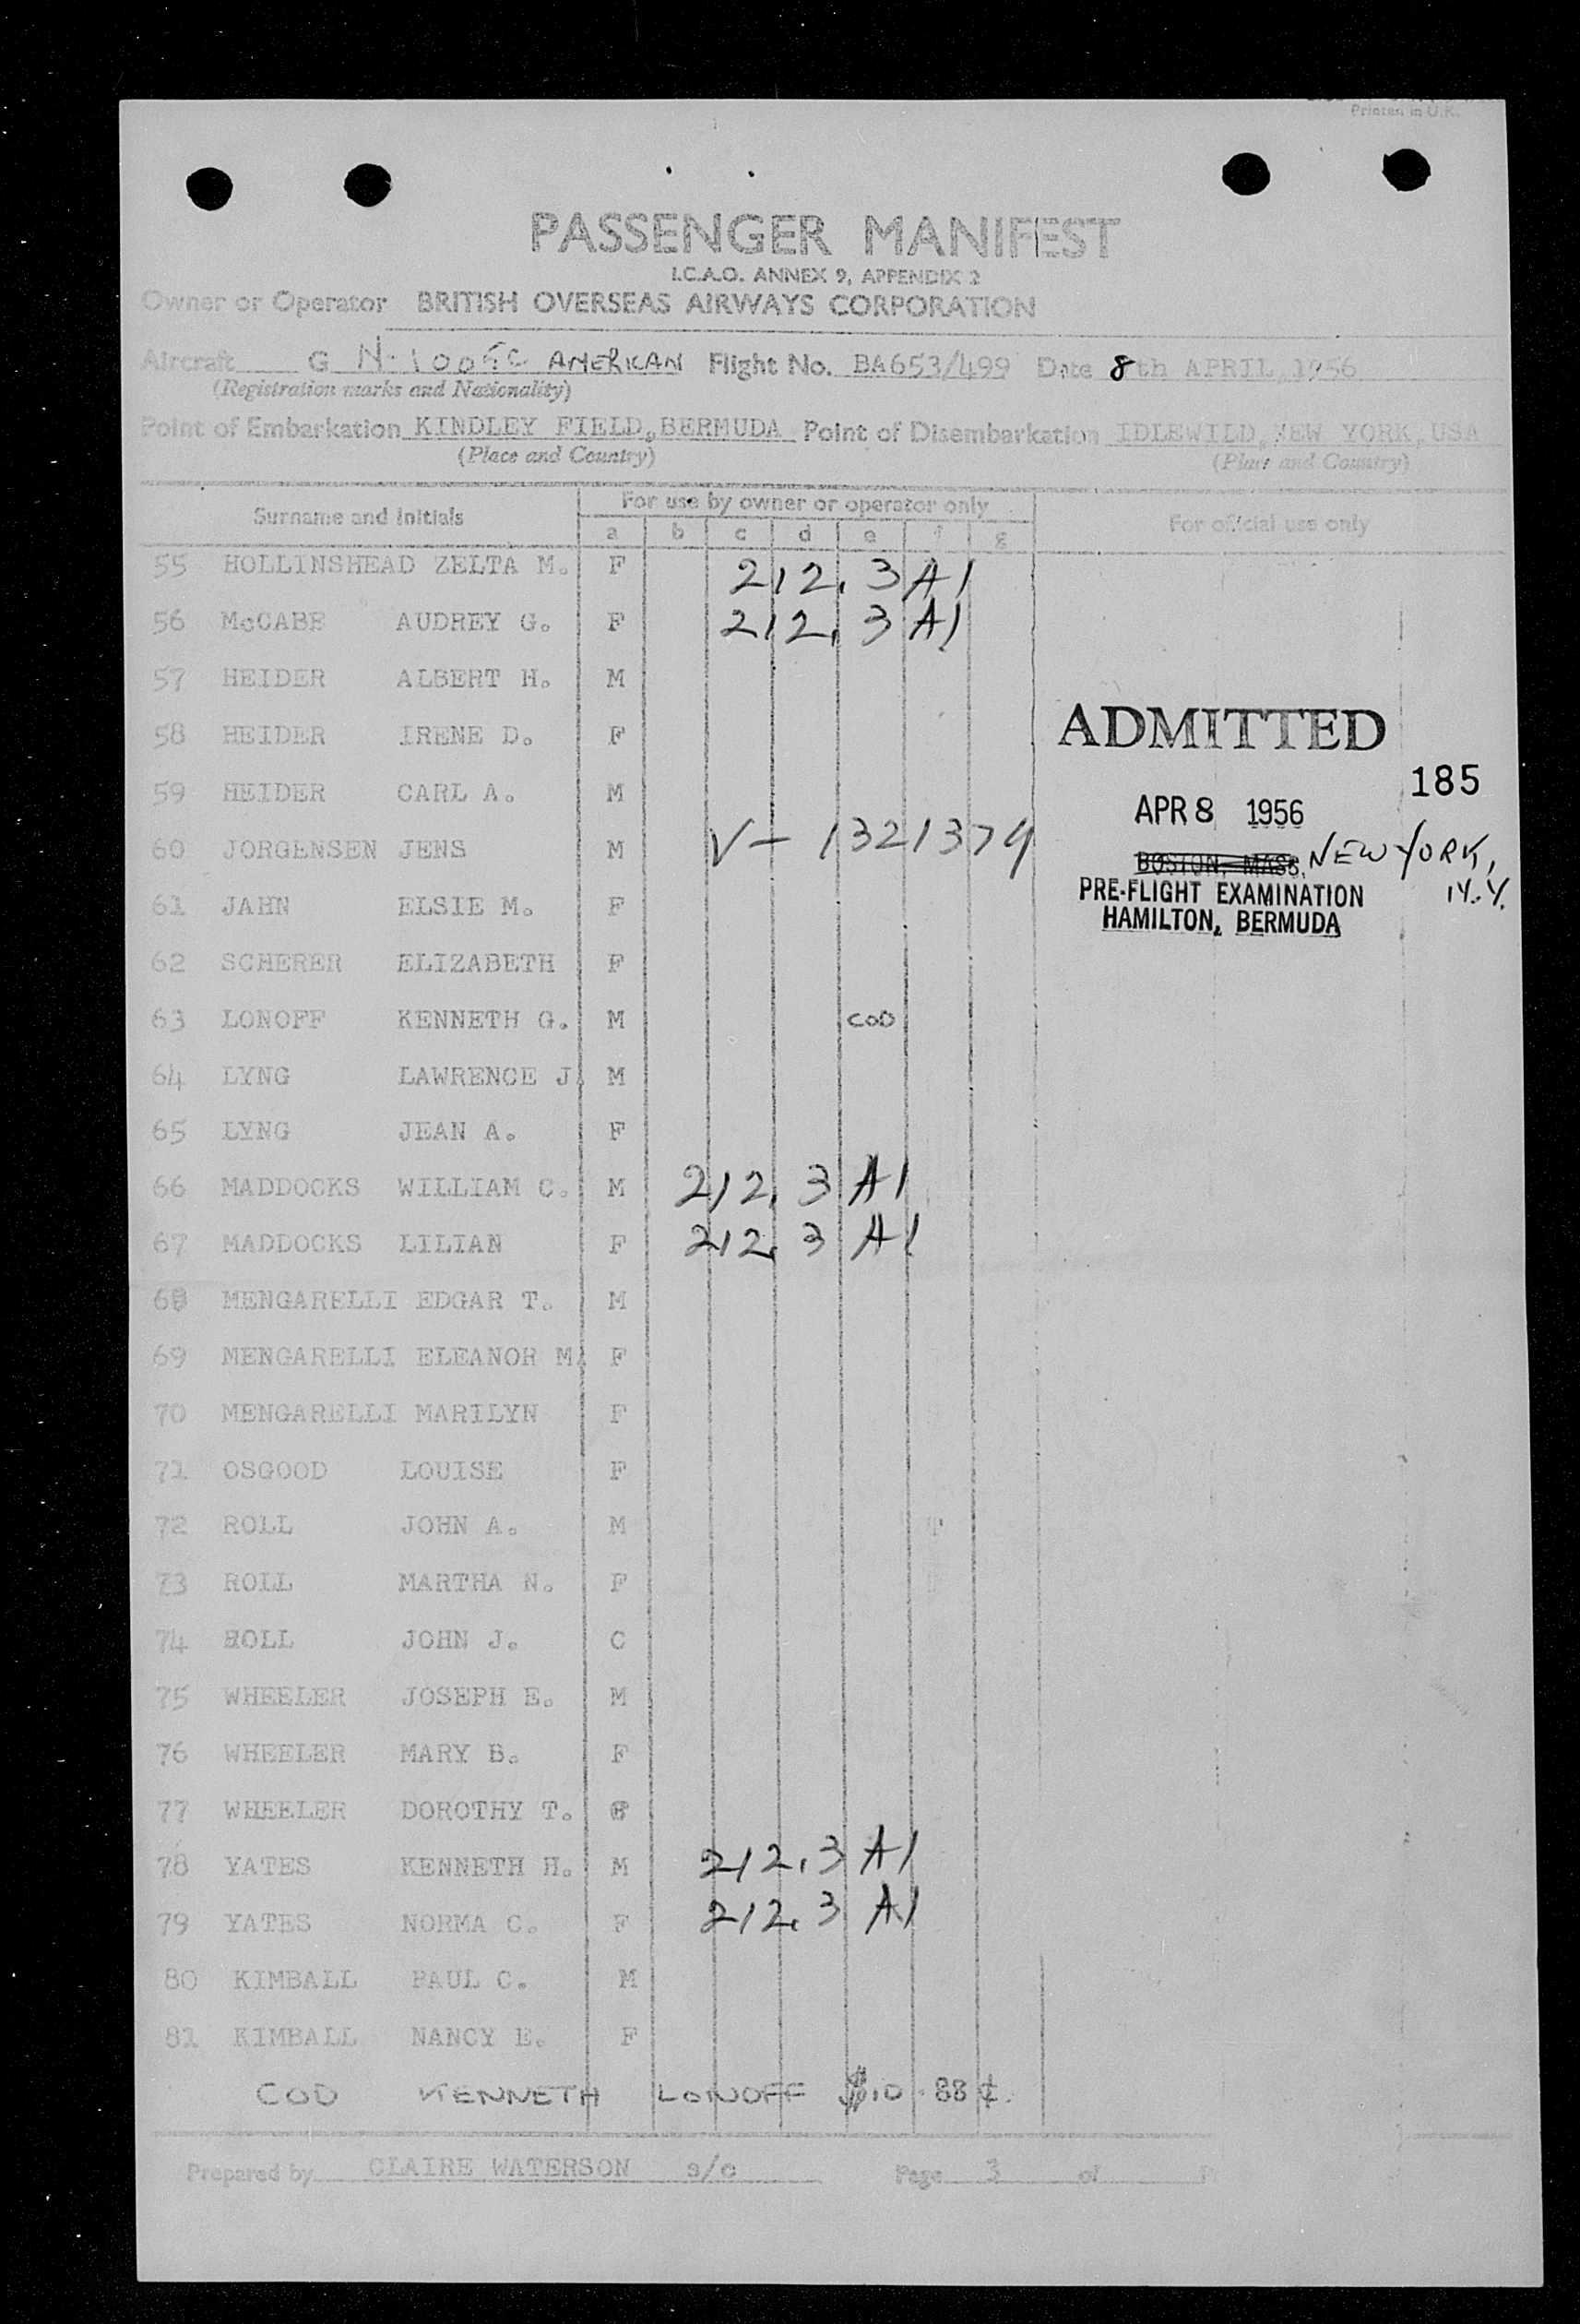 Printed in U.K.
PASSENGER MANIFEST
I.C.A.O. ANNEX 9, APPENDIX 2
Owner or Operator BRITISH OVERSEAS AIRWAYS CORPORATION
Aircraft G AMERICAN Flight No. BA653/499 Date 8th APRIL, 1956
(Registration marks and Nationality)
Point of Embarkation KINDLEY FIELD, BERMUDA Point of Disembarkation IDLEWILD, NEW YORK, USA
(Place and Country) (Place and Country)
Surname and Initials For use by owner or operator only For official use only
a b c d e f g
55 HOLLINSHEAD ZELTA M. F 212.3 A1
56 McCABE AUDREY G. F 212.3 A1
57 HEIDER ALBERT H. M
58 HEIDER IRENE D. F
59 HEIDER CARL A. M
60 JORGENSEN JENS M V-1321374
61 JAHN ELSIE M. F
62 SCHERER ELIZABETH F
63 LONOFF KENNETH G. M COD
64 LYNG LAWRENCE J. M
65 LYNG JEAN A. F
66 MADDOCKS WILLIAM C. M 212.3 A1
67 MADDOCKS LILIAN F 212.3 A1
68 MENGARELLI EDGAR T. M
69 MENGARELLI ELEANOR M. F
70 MENGARELLI MARILYN F
71 OSGOOD LOUISE F
72 ROLL JOHN A. M
73 ROLL MARTHA N. F
74 ROLL JOHN J. C
75 WHEELER JOSEPH E. M
76 WHEELER MARY B. F
77 WHEELER DOROTHY T.
78 YATES KENNETH H. M 212.3 A1
79 YATES NORMA C. F 212.3 A1
80 KIMBALL PAUL C. M
81 KIMBALL NANCY E. F
COD KENNETH LONOFF $10.88¢.
ADMITTED
185
APR 8 1956
BOSTON, MASS. NEW YORK,
N.Y.
PRE-FLIGHT EXAMINATION
HAMILTON, BERMUDA
Prepared by CLAIRE WATERSON s/c Page 3 of